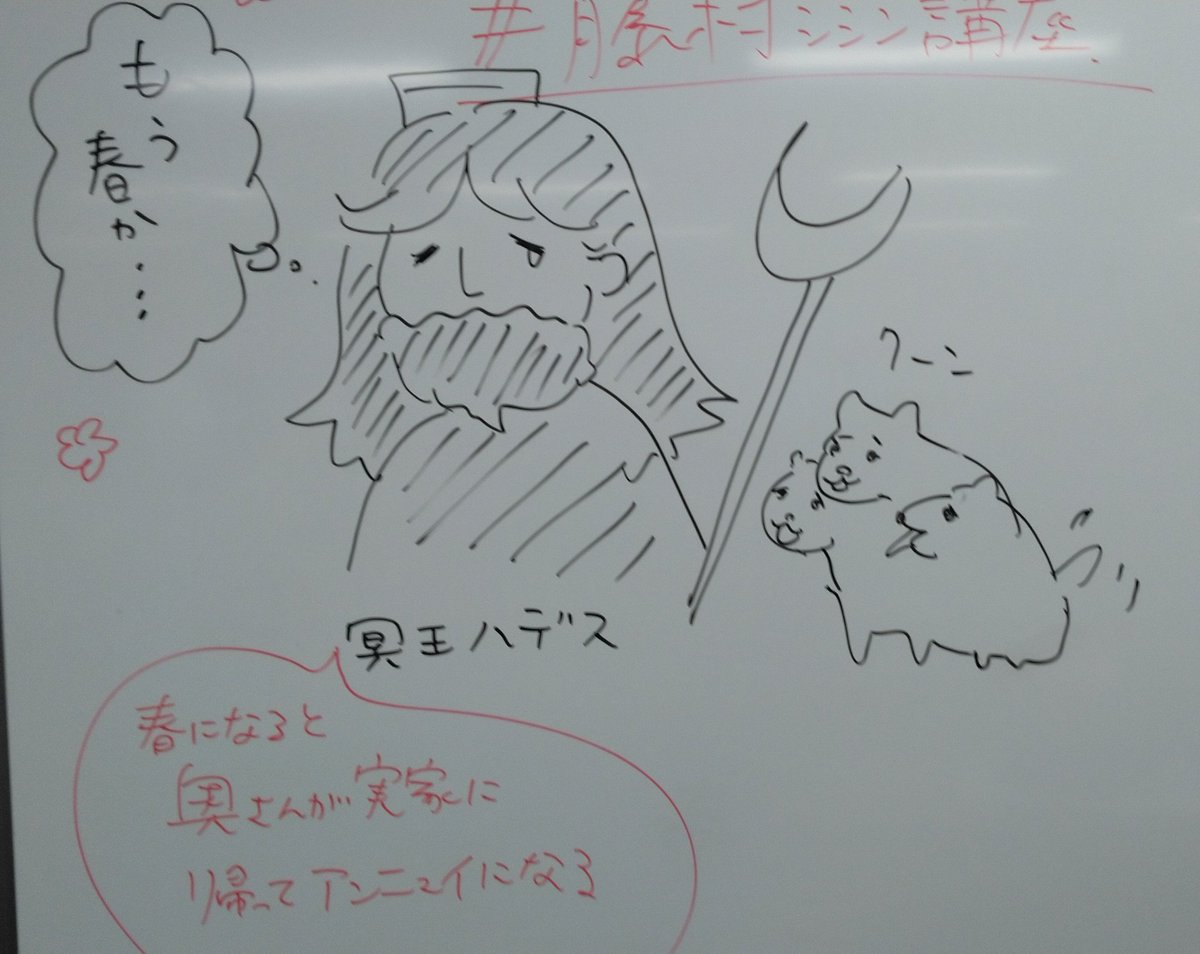 #服村シシン講座
もう
春か……
クーン
冥王ハデス
春になると
奥さんが実家に
帰ってアンニュイになる